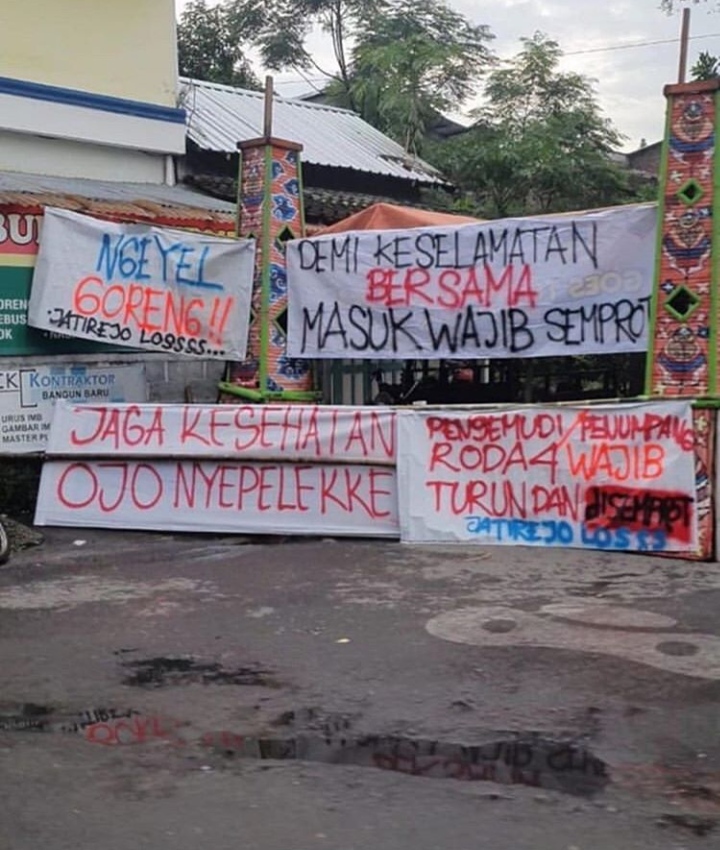 NGEYEL
GORENG!!
JATIREJO LOSSSS...
DEMI KESELAMATAN
BERSAMA
MASUK WAJIB SEMPROT
JAGA KESEHATAN
OJO NYEPELEKKE
PENGEMUDI/PENUMPANG
RODA 4 WAJIB
TURUN DAN DISEMPROT
JATIREJO LOSSS
BU
OREN
EBUS
OK
CK KONTRAKTOR
BANGUN BARU
URUS IMB
GAMBAR IM
MASTER PL